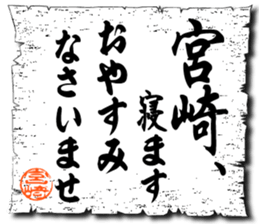 宮崎、
寝ます
おやすみ
なさいませ
宮崎